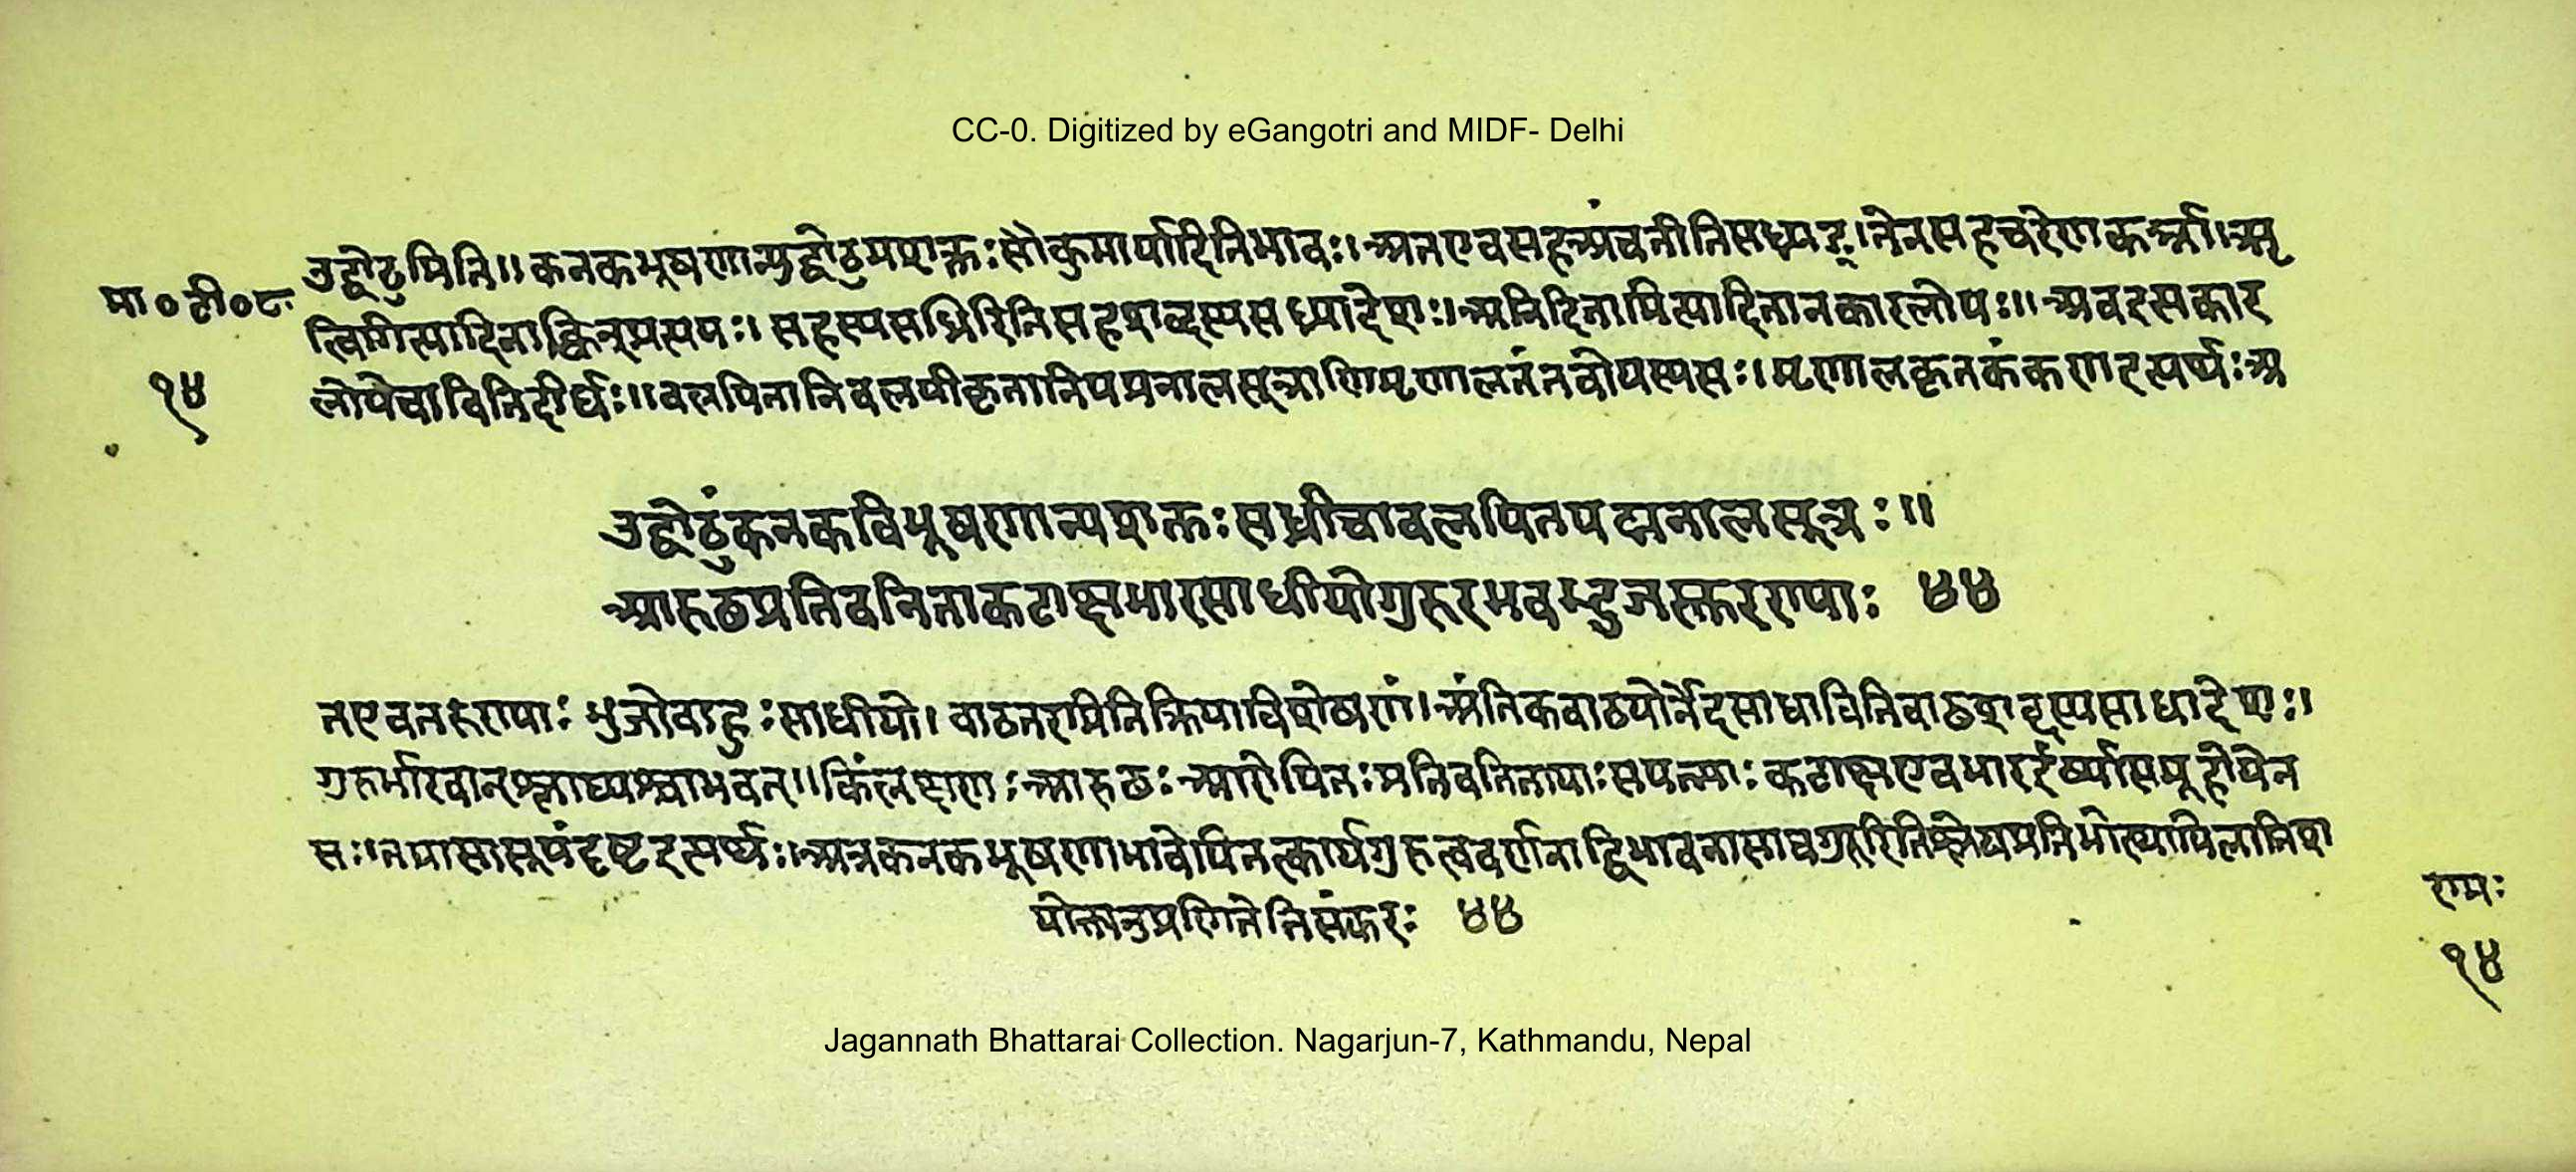 CC-0. Digitized by eGangotri and MIDF- Delhi
मा० टी० ८
१४
उद्वोढुमिति॥ कनकभूषणान्युद्वोढुमशक्तः सौकुमार्यादितिभावः। अतएव सहअंचतीति सध्र्यङ्। तेन सहचरेण कर्त्रा। ऋ
त्विगित्यादिना क्विन्प्रत्ययः। सहस्य सध्रिरिति सहशब्दस्य सध्र्यादेशः। अनिदितामित्यादिनानकारलोपः॥ अचइत्यकार
लोपेचाविति दीर्घः॥ वलयितानि वलयीकृतानि पद्मनालसूत्राणि मृणालतंतवोयस्य सः। मृणालकृतकंकणइत्यर्थः अ
उद्वोढुंकनकविभूषणान्यशक्तः सध्रीचावलयितपद्मनालसूत्रः॥
आरूढप्रतिवनिताकटाक्षभारसाधीयोगुरुरभवद्भुजस्तरुण्याः ४४
तएवतरुण्याः भुजोबाहुः साधीयो। बाढतरामितिक्रियाविशेषणं। अंतिकबाढयोर्नेदसाधाविति बाढशब्दस्यसाधादेशः।
गुरुर्भारवान् श्लाघ्यश्चाभवत्॥ किंलक्षणः आरूढः आरोपितः प्रतिवनितायाः सपत्न्याः कटाक्षएवभार ईर्ष्या येन
सः। दृष्टइत्यर्थः। अत्रकनकभूषणाभावेपितत्कार्यगुरुत्ववर्णनाद्विभावना साचगुरुरितिश्लेषप्रतिभोत्थापितातिश
योक्त्यनुप्राणितेतिसंकरः ४४
रामः
१४
Jagannath Bhattarai Collection. Nagarjun-7, Kathmandu, Nepal